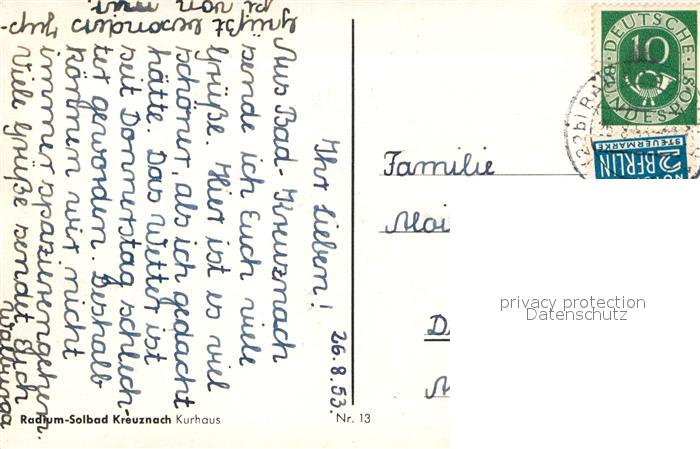 26.8.53.
Ihr Lieben!
Aus Bad-Kreuznach
sende ich Euch viele
Grüße. Hier ist es viel
schöner, als ich gedacht
hätte. Das Wetter ist
seit Donnerstag schlech-
ter geworden. Deshalb
können wir nicht
immer spazierengehen.
Viele Grüße sendet Euch
Walburga
Radium-Solbad Kreuznach Kurhaus
Nr. 13
Familie
DEUTSCHE
BUNDESPOST
10
2 BERLIN
STEUERMARKE
privacy protection
Datenschutz